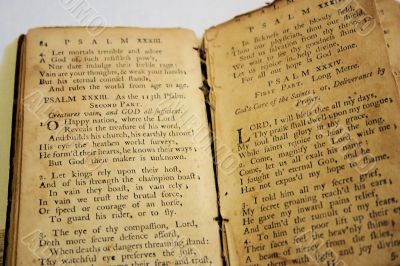 84 PSALM XXXIII.
4. Let mortals tremble and adore
A God of such resistless pow'r,
Nor dare indulge their feeble rage:
Vain are your thoughts, & weak your hands,
But his eternal counsel stands,
And rules the world from age to age.
PSALM XXXIII. As the 113th Psalm.
SECOND PART.
Creatures vain, and GOD all sufficient.
O Happy nation, where the Lord
Reveals the treasure of his word,
And builds his church, his earthly throne!
His eye the heathen world surveys,
He form'd their hearts, he knows their ways;
But God their maker is unknown.
2. Let kings rely upon their host,
And of his strength the champion boast;
In vain they boast, in vain rely,
In vain we trust the brutal force,
Or speed or courage of an horse,
To guard his rider, or to fly.
3. The eye of thy compassion, Lord,
Doth more secure defence afford,
When deaths or dangers threatning stand:
Thy watchful eye preserves the just,
PSALM XXXIV.
In sickness or the bloody field,
PSALM XXXIV.
FIRST PART. Long Metre.
God's Care of the Saints; or, Deliverance by
Prayer.
LORD, I will bless thee all my days,
Thy praise shall dwell upon my tongue;
My soul shall glory in thy grace,
While saints rejoice to hear the song.
2. Come, magnify the Lord with me;
Come, let us all exalt his name:
I sought th' eternal God, and he
Has not expos'd my hope to shame.
3. I told him all my secret grief,
My secret groaning reach'd his ears;
He gave my inward pains relief,
And calm'd the tumult of my fears.
4. To him the poor lift up their eyes,